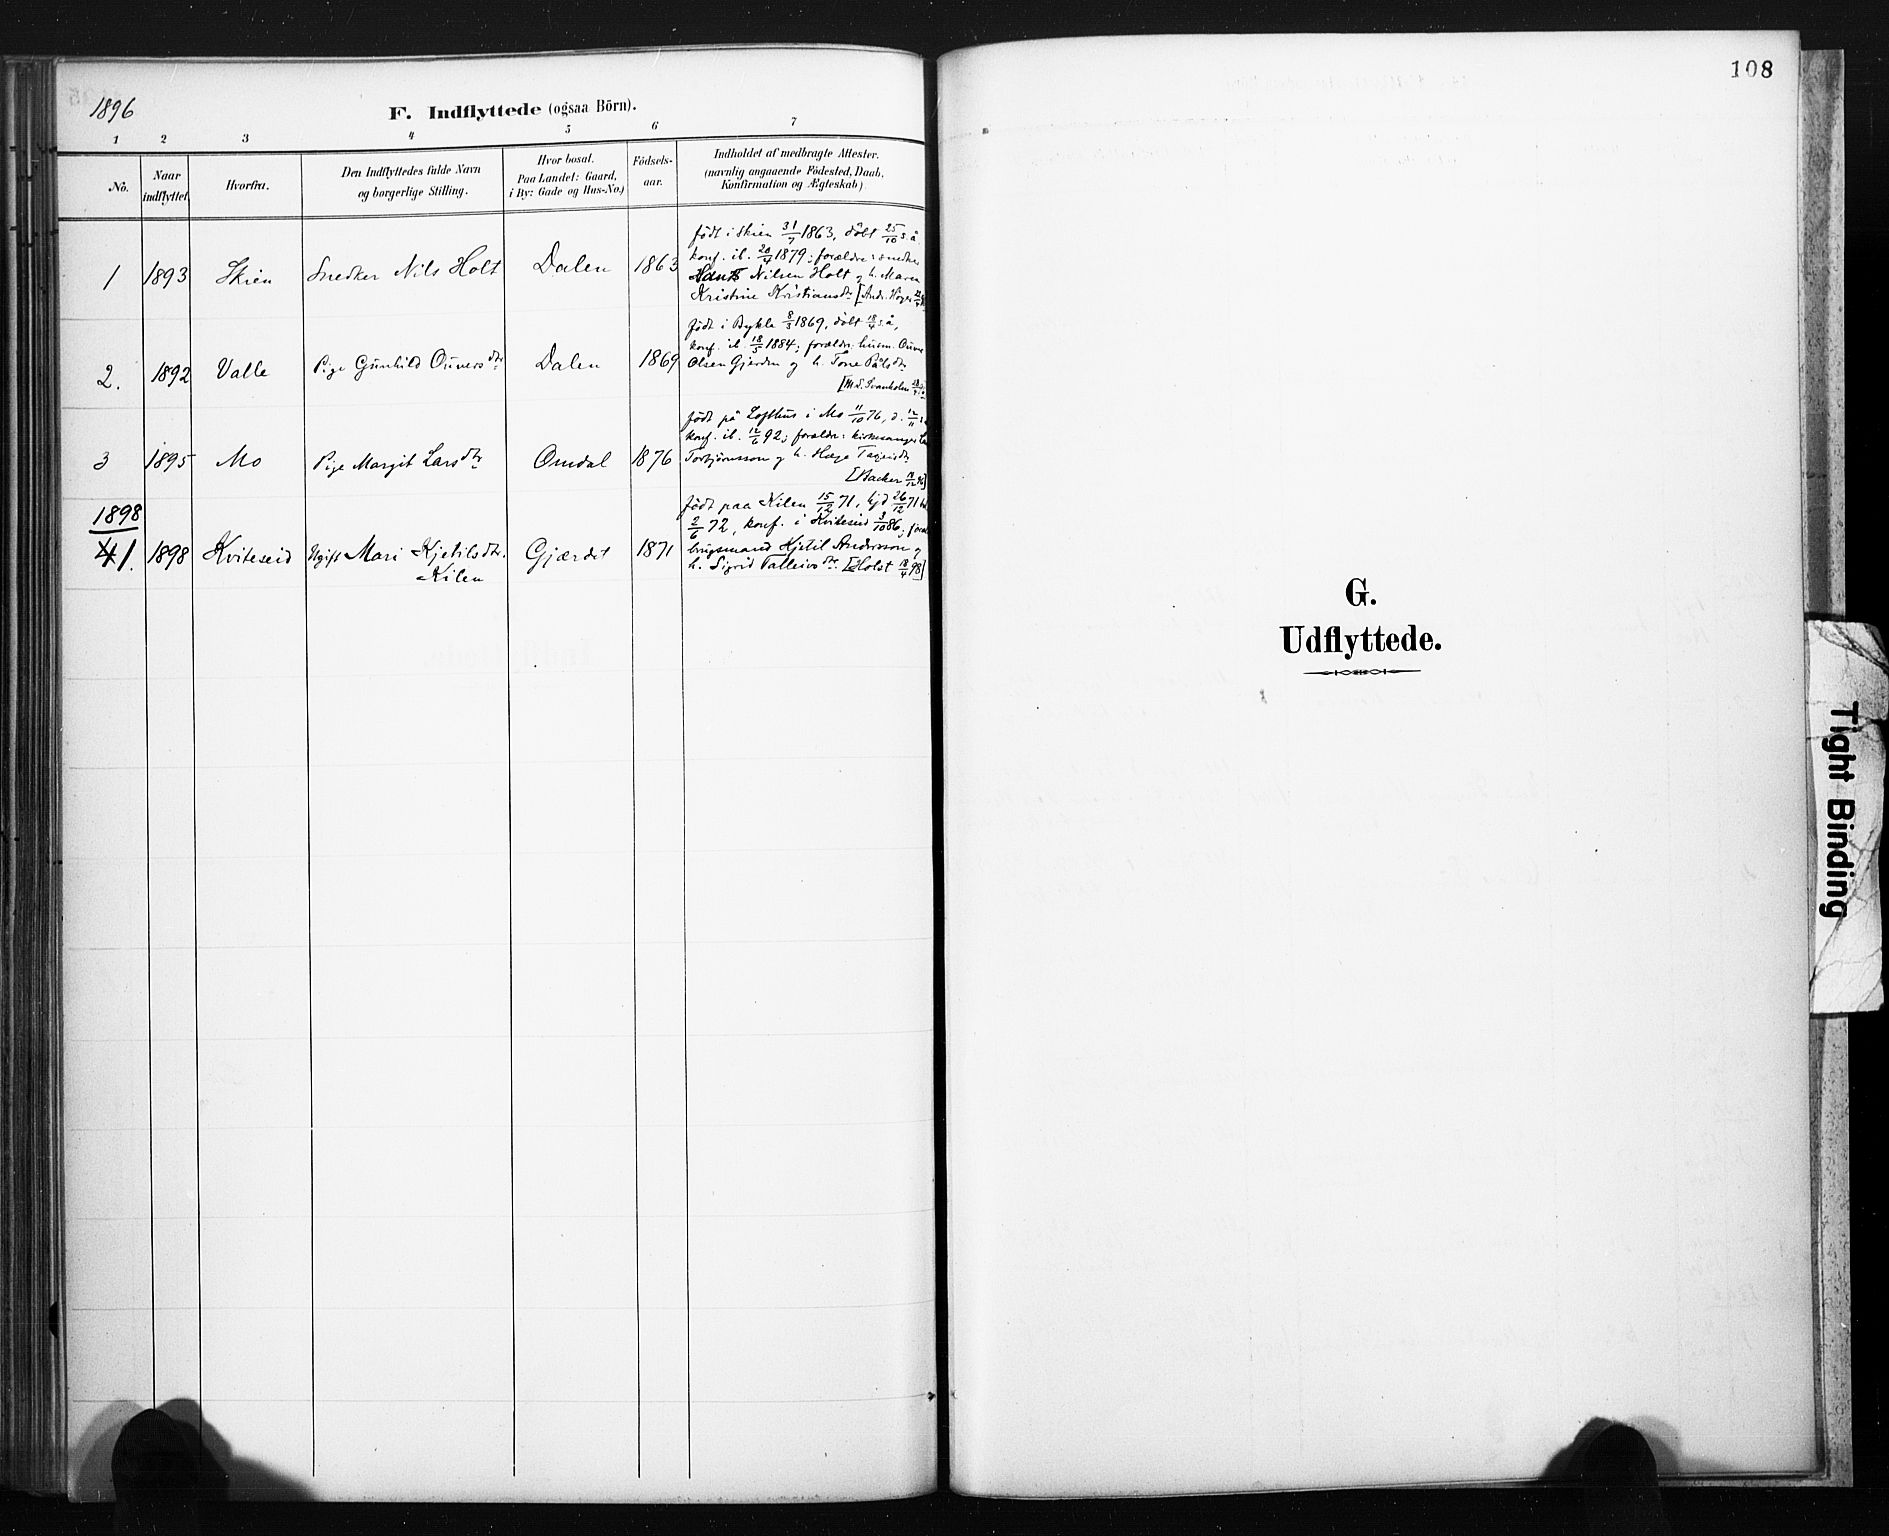 1896
F. Indflyttede (ogsaa Börn).
1 2 3 4 5 6 7
No.
Naar
indflyttet.
Hvorfra.
Den Indflyttedes fulde Navn
og borgerlige Stilling.
Hvor bosat.
Paa Landet: Gaard,
i By: Gade og Hus-No.)
Födsels-
aar.
Indholdet af medbragte Attester.
(navnlig angaaende Födested, Daab,
Konfirmation og Ægteskab)
1 1893 Skien Snedker Nils Holt Dalen 1863
født i Skien 31/7 1863, døbt 25/10 s.å.
konf. ib. 20/4 1879; forældre: snedker
Nilsen Holt og h. Maren
Kristine Kristiansdtr [Andr. Høyer
2. 1892 Valle Pige Gunhild Ounersdtr Dalen 1869
født i Bykle 8/3 1869, døbt 18/4 s.å,
konf. ib. 18/5 1884; forældre: husm. Ouner
Olsen Gjerden og h. Tone Pålsdtr
[M. S. Svanholm
3 1895 Mo Pige Margit Larsdtr Omdal 1876
født på Lofthus i Mo 11/10 76, d. 12/11
konf. ib. 12/6 92; forældre: kirkesanger
Torbjørnsson og h. Hæge Tarjeisdtr
[Backer
1898
41. 1898 Kviteseid Ugift Mari Kjetilsdtr. Gjærdet 1871
Kilen
født paa Kilen 15/12 71, hjd 26/12 71
2/6 72, konf. i Kviteseid 3/10 86;
brugsmand Kjetil Andersson og
h. Sigrid Talleivsdtr. [Holst 18/4 98]
108
G.
Udflyttede.
Tight Binding